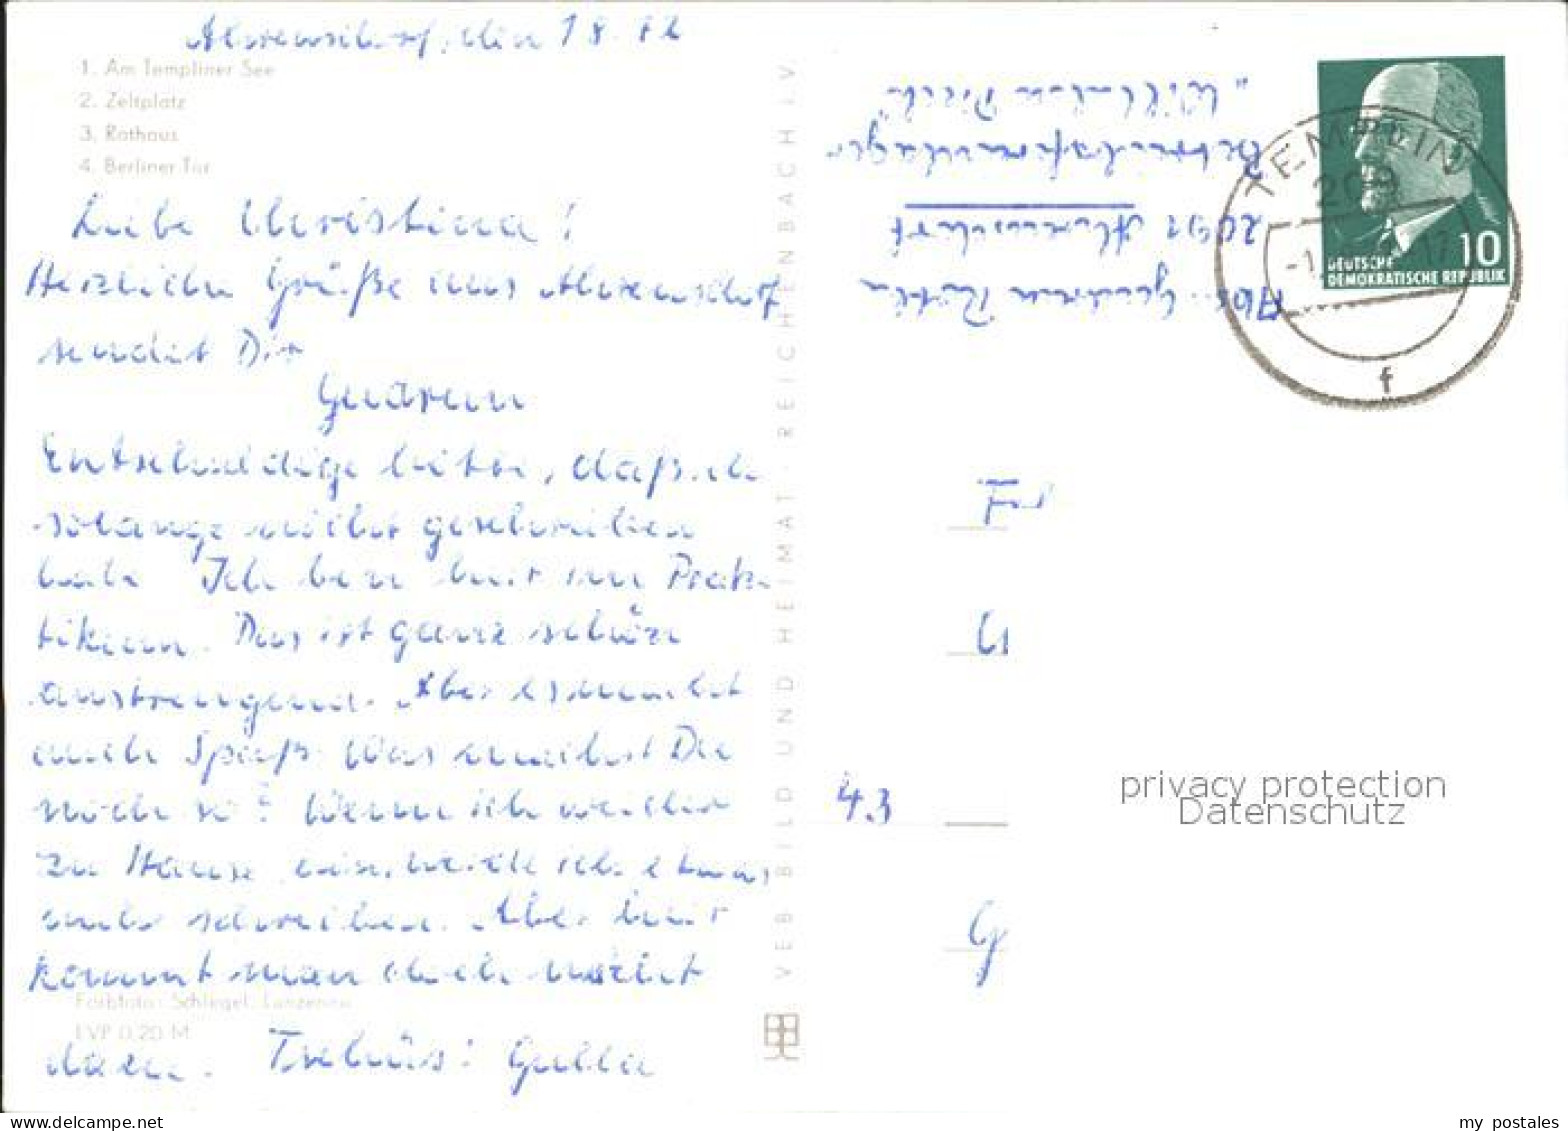 Ahrensdorf, den 1 8. 82
1. Am Templiner See
2. Zeltplatz
3. Rathaus
4. Berliner Tor
Liebe Christina!
Herzliche Grüße aus Ahrensdorf
sendet Dir
Gudrun
Entschuldige bitte, daß ich
solange nicht geschrieben
habe Ich bin hier im Prak-
tikum. Das ist ganz schön
anstrengend. Aber es macht
auch Spaß. Was machst Du
noch so? Wenn ich wieder
zu Hause bin, werde ich etwas
mehr schreiben. Aber hier
kommt man doch nicht
dazu. Tschüs! Gulla
Farbfoto: Schlegel, Lunzenau
EVP 0,20 M
VEB BILD UND HEIMAT REICHENBACH I. V.
Abs. Gudrun
2091 Ahrensdorf
Betriebsferienlager
"Wilhelm Pieck"
TEMPLIN
209
-1.
17
f
10
DEUTSCHE
DEMOKRATISCHE REPUBLIK
43
G
privacy protection
Datenschutz
my postales